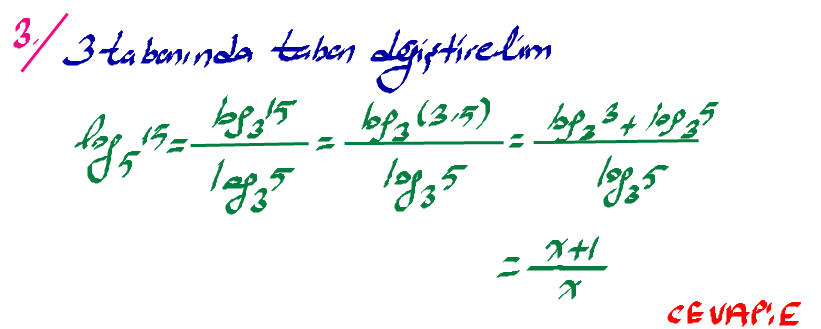 3. / 3 tabanında taban dğiştirelim
log₅15 = log₃15 / log₃5 = log₃(3.5) / log₃5 = log₃3 + log₃5 / log₃5
= x+1 / x
CEVAP: E